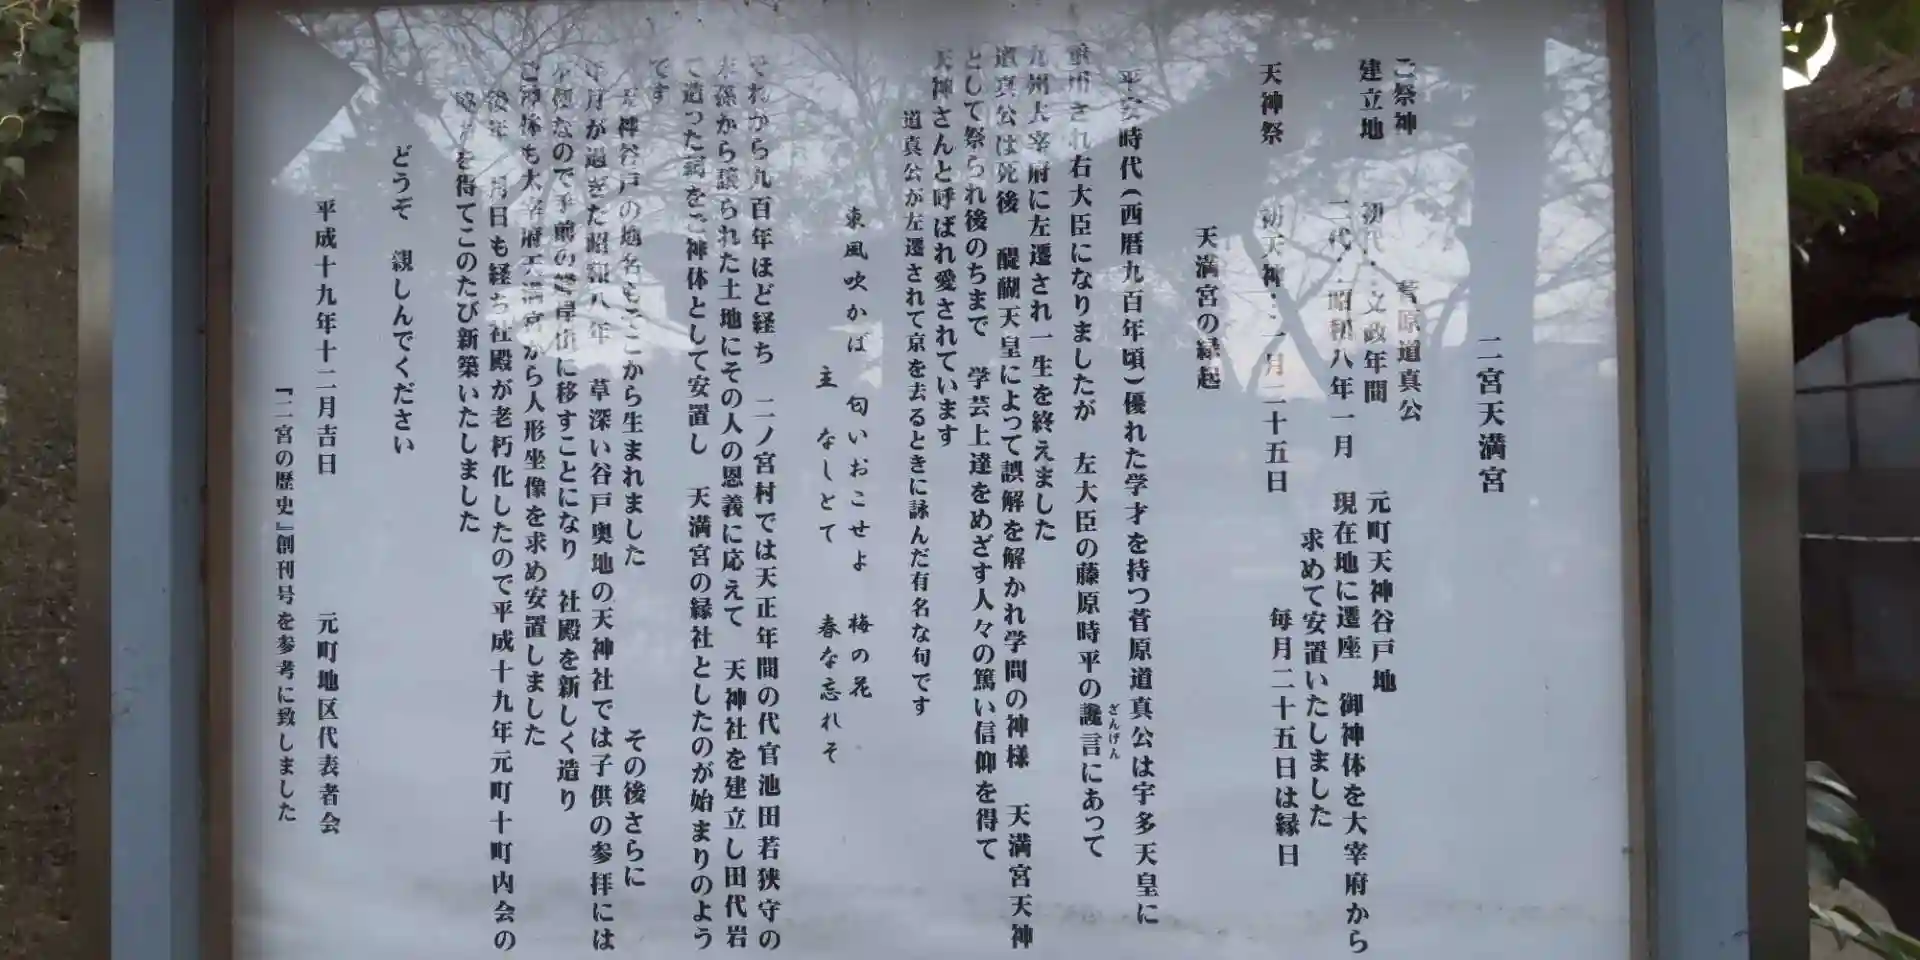 二宮天満宮
ご祭神 菅原道真公
建立地 初代：文政年間 元町天神谷戸地
二代：昭和八年一月 現在地に遷座 御神体を大宰府から
求めて安置いたしました
天神祭 初天神：一月二十五日 毎月二十五日は縁日
天満宮の縁起
平安時代(西暦九百年頃)優れた学才を持つ菅原道真公は宇多天皇に
重用され右大臣になりましたが 左大臣の藤原時平の讒言にあって
ざんげん
九州大宰府に左遷され一生を終えました
道真公は死後 醍醐天皇によって誤解を解かれ学問の神様 天満宮天神
として祭られ後のちまで 学芸上達をめざす人々の篤い信仰を得て
天神さんと呼ばれ愛されています
道真公が左遷されて京を去るときに詠んだ有名な句です
東風吹かば 匂いおこせよ 梅の花
主 なしとて 春な忘れそ
それから九百年ほど経ち 二ノ宮村では天正年間の代官池田若狭守の
末孫から譲られた土地にその人の恩義に応えて 天神社を建立し田代岩
て造った祠をご神体として安置し 天満宮の縁社としたのが始まりのよう
です
天神谷戸の地名もここから生まれました その後さらに
年月が過ぎた昭和八年 草深い谷戸奥地の天神社では子供の参拝には
なので手前の に移すことになり 社殿を新しく造り
ご神体も大宰府天満宮から人形坐像を求め安置しました
後年 月日も経ち社殿が老朽化したので平成十九年元町十町内会の
を得てこのたび新築いたしました
どうぞ 親しんでください
平成十九年十二月吉日 元町地区代表者会
『二宮の歴史』創刊号を参考に致しました